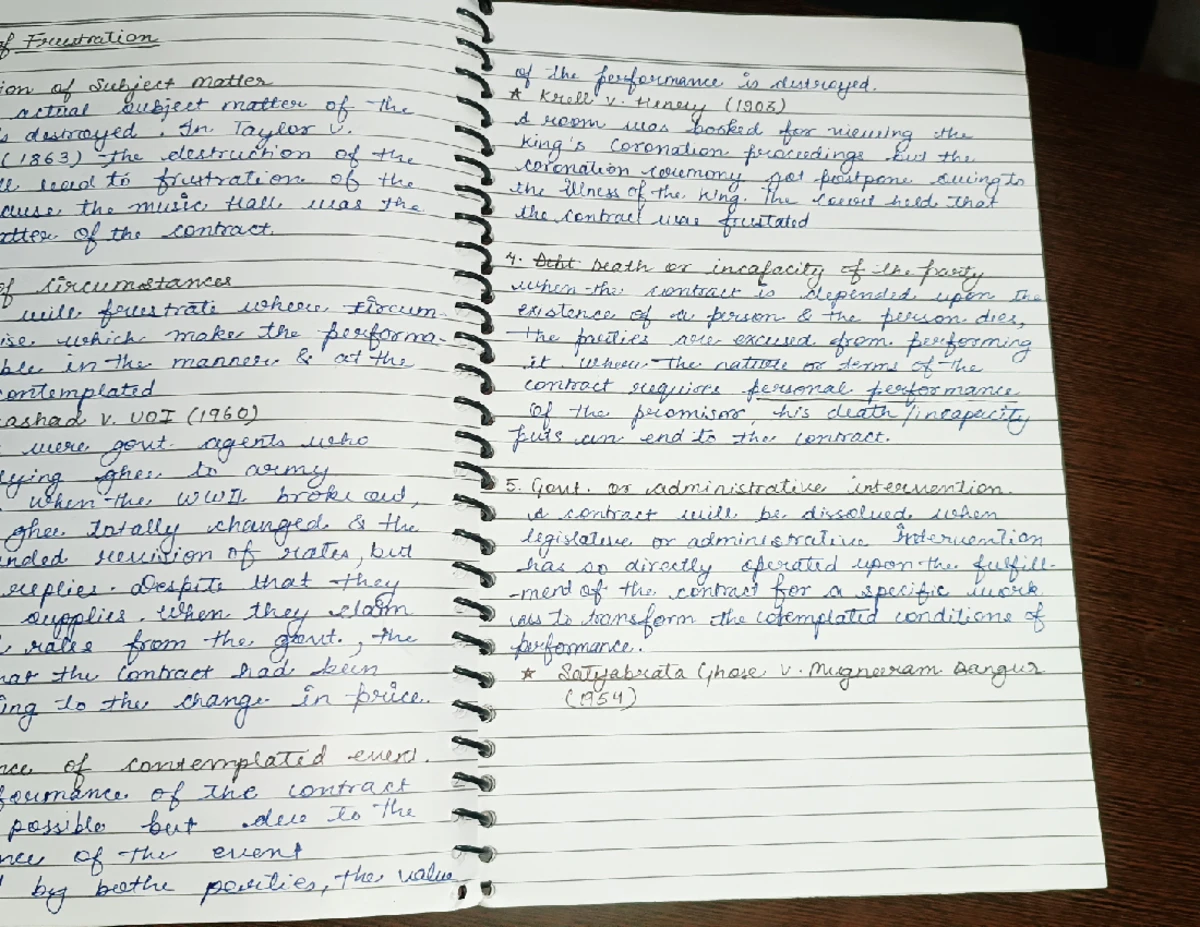 of Frustration
ion of Subject matter
actual subject matter of the
s destroyed. In Taylor v.
(1863) the destruction of the
lead to frustration of the
cause the music Hall was the
atter of the contract.
of circumstances
will frustrate where circum-
ise which make the performa-
ble in the manner & at the
contemplated
ashad v. UOI (1960)
were govt. agents who
lying ghee to army
when the WWII broke out,
ghee totally changed & the
nded revision of rates, but
supplies. Despite that they
supplies. When they claim
rates from the govt., the
hat the contract had been
ing to the change in price.
nce of contemplated event.
formance of the contract
possible but due to the
nce of the event
by bothe parties, the value
of the performance is destroyed.
★ Krell v. Henery (1903)
A room was booked for viewing the
King's coronation proceedings but the
coronation ceremony got postpone owing to
the illness of the King. The court held that
the contract was frustated
4. Death or incapacity of the party
when the contract is depended upon the
existence of a person & the person dies,
the parties are excused from performing
it. where the nature or terms of the
contract requires personal performance
of the promisor, his death/incapacity
puts an end to the contract.
5. Govt. or administrative intervention.
A contract will be dissolved when
legislative or administrative intervention
has so directly operated upon the fulfill-
-ment of the contract for a specific work
as to transform the cotemplated conditions of
performance.
★ Satyabrata Ghose v. Mugneeram Bangur
(1954)